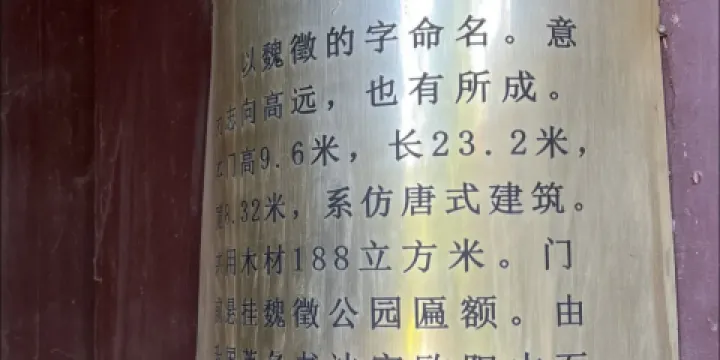 以魏徵的字命名。意
为志向高远，也有所成。
门高9.6米，长23.2米，
8.32米，系仿唐式建筑。
用木材188立方米。门
是挂魏徵公园匾额。由